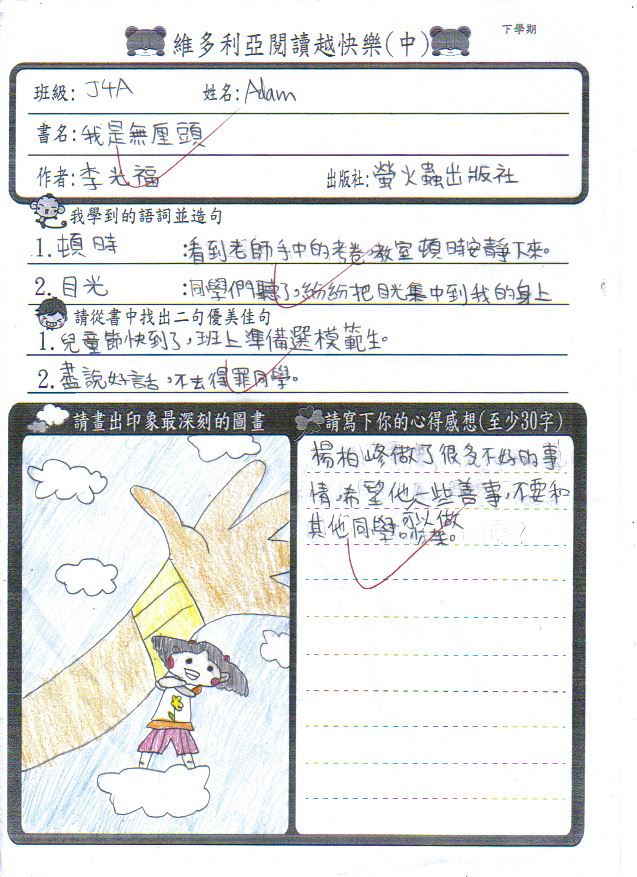 下學期
維多利亞閱讀越快樂(中)
班級: J4A 姓名: Adam
書名: 我是無厘頭
作者: 李光福 出版社: 螢火蟲出版社
我學到的語詞並造句
1. 頓時 :看到老師手中的考卷,教室頓時安靜下來。
2. 目光 :同學們聽了,紛紛把目光集中到我的身上
請從書中找出二句優美佳句
1. 兒童節快到了,班上準備選模範生。
2. 盡說好話,不去得罪同學。
請畫出印象最深刻的圖畫
請寫下你的心得感想(至少30字)
楊柏峰做了很多不好的事
情,希望他可以做一些善事,不要和
其他同學吵架。